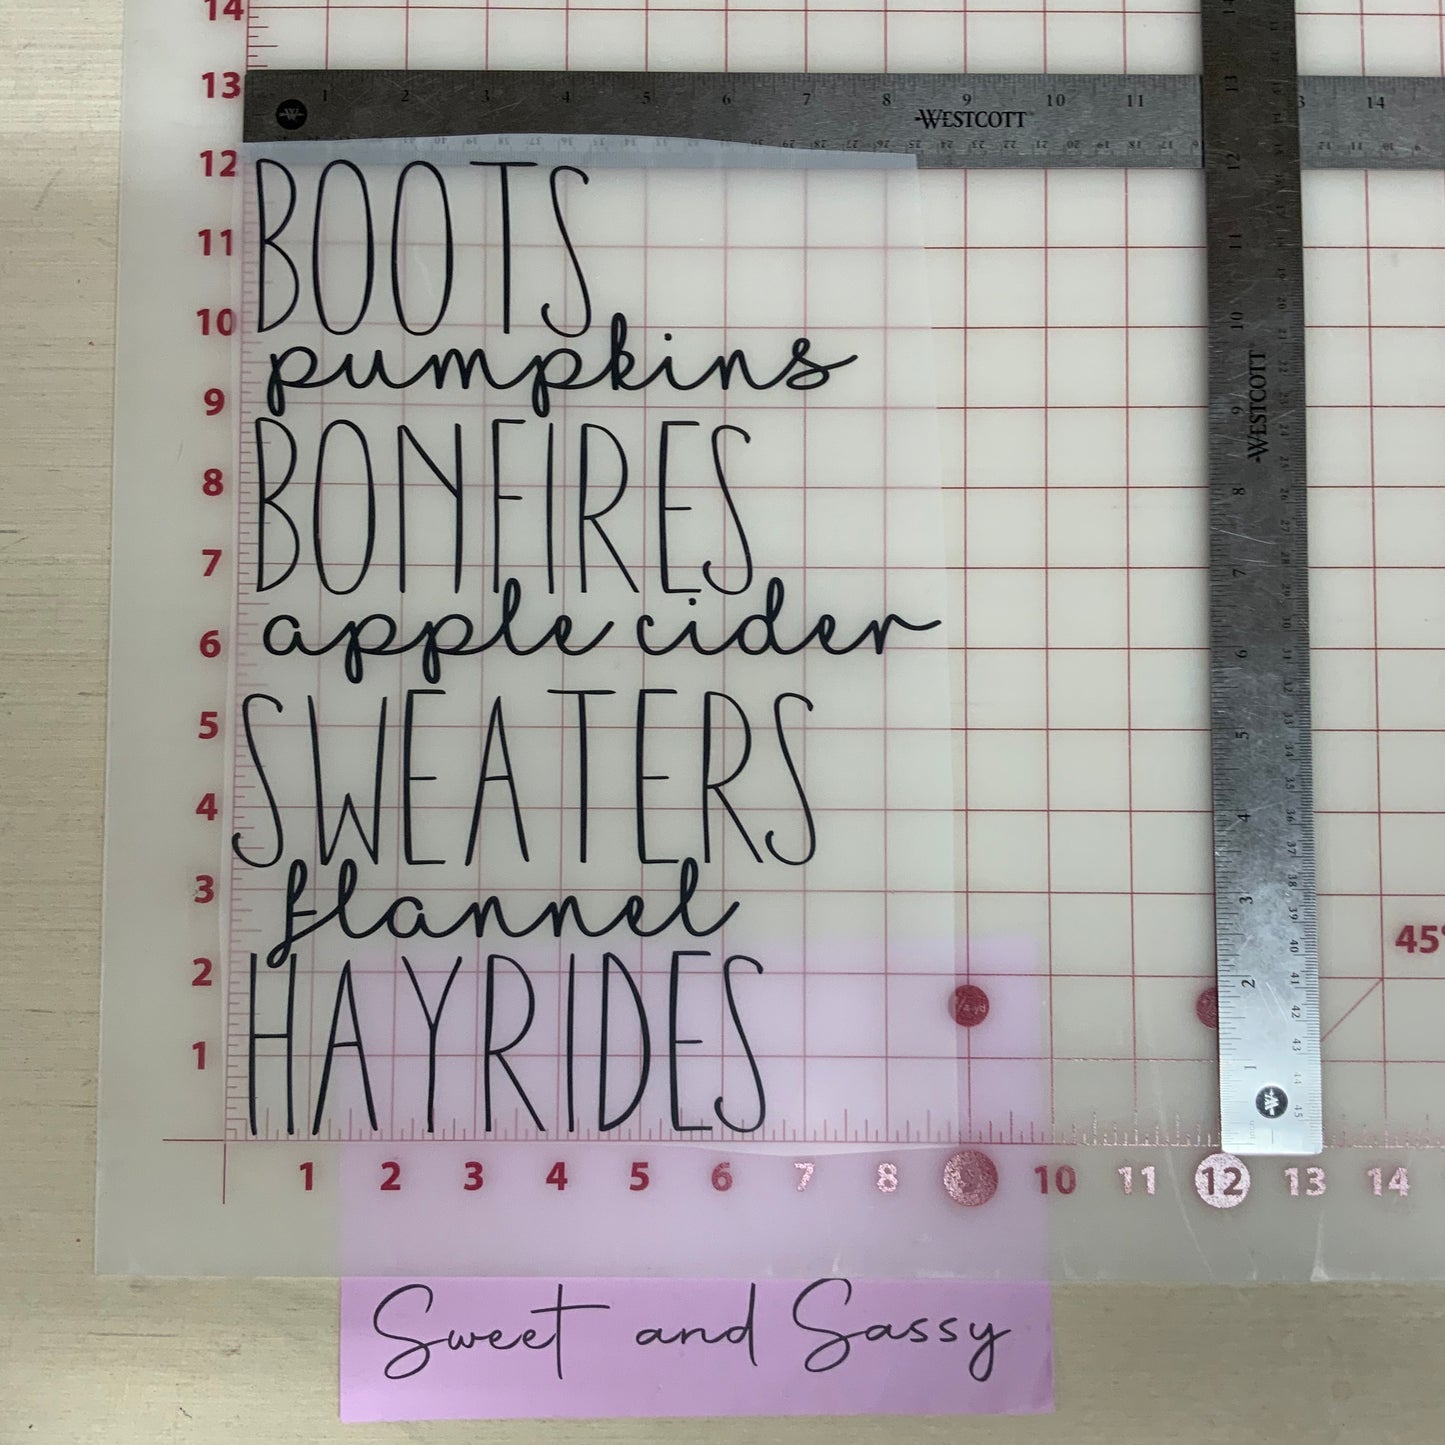 14
13
1 2 3 4 5 6 7 8 9 10 11 3 14
WESTCOTT
12
BOOTS
11
10
pumpkins
9
BONFIRES
8
7
apple cider
6
SWEATERS
5
4
flannel
3
HAYRIDES
2
1
13
12
11
10
9
WESTCOTT
8
7
6
5
4
3
2
1
45°
1 2 3 4 5 6 7 8 9 10 11 12 13 14
Sweet and Sassy